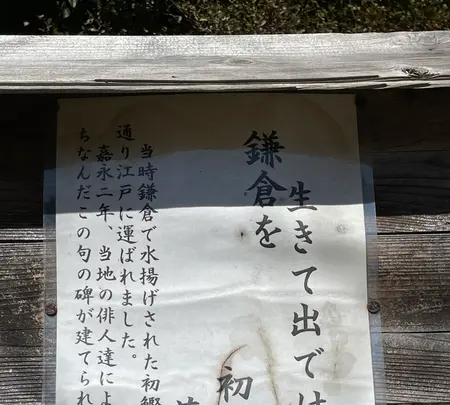 鎌倉を
生きて出でけ
初
当時鎌倉で水揚げされた初鰹
通り江戸に運ばれました。
嘉永二年、当地の俳人達によ
ちなんだこの句の碑が建てられ